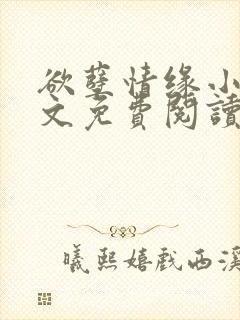 欲孽情缘小
文免費閱讀
曦熙嬉戲西溪